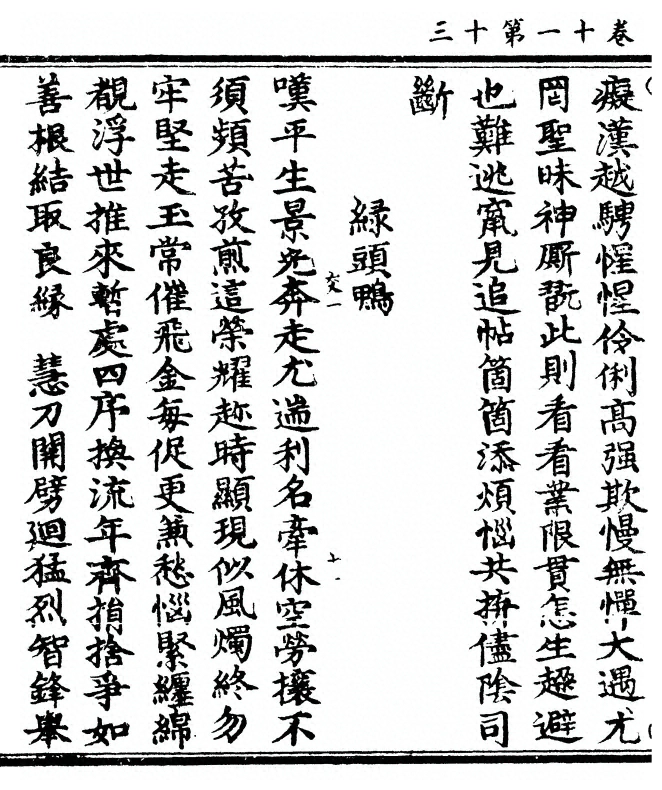 卷十一第十三
癡漢越騁惺惺伶俐高强欺慢無憚大遇尤
罔聖昧神厮翫此則看看業限貫怎生趓避
也難逃竄見追帖箇箇添煩惱共擠儘陰司
斷
緑頭鴨
嘆平生景兔奔走尤遄利名牽休空勞攘不
須頻苦孜煎這榮耀趂時顯現似風燭終勿
牢堅走玉常催飛金每促更兼愁惱緊纏綿
覩浮世推來暫處四序換流年齊捐捨爭如
善根結取良緣 慧刀開劈迴猛烈智鋒舉